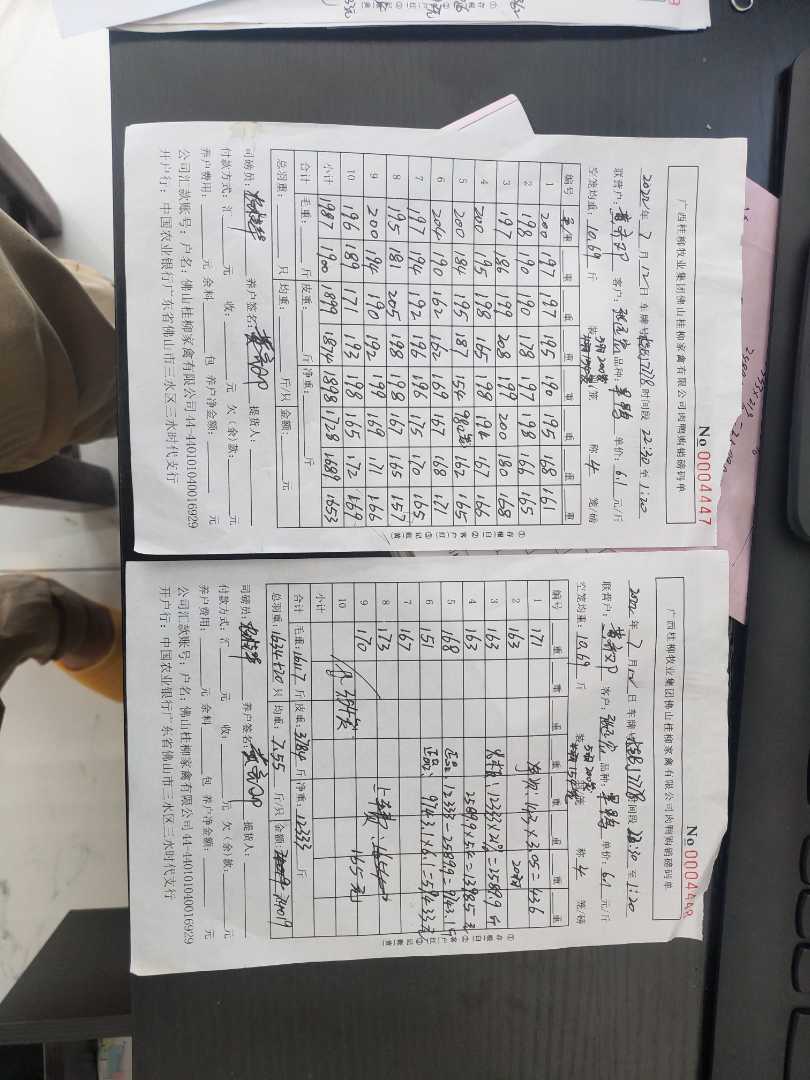 广西桂柳牧业集团佛山桂柳家禽有限公司肉鸭购销磅码单
No 0004447
2022年 7月12日 车牌号 时间段 22:30至1:20
联营户: 客户: 品种: 单价: 6.1 元/斤
空笼均重: 10.69 斤 装 笼 称 4 笼/磅
编号 毛重 重 重 重 重 重 重 重
1 200 197 197 195 190 195 168 161
2 198 190 190 178 197 198 166 165
3 197 186 199 208 199 200 180 168
4 200 195 198 165 198 194 167 166
5 200 184 195 187 154 162 165
6 204 190 162 162 169 167 168 171
7 197 194 192 196 196 175 170 165
8 195 181 205 198 198 167 165 157
9 200 194 190 192 199 169 171 166
10 196 189 171 193 198 165 172 169
小计 1987 1900 1899 1874 1898 1728 1689 1653
合计 毛重: 斤 皮重: 斤 净重: 斤
总羽重: 只 均重: 斤/只 金额: 元
司磅员: 养户签名: 提货人:
付款方式: 汇 元 收: 元 欠(余)款: 元
养户费用: 元 余料 包 养户净金额: 元
公司汇款账号: 户名: 佛山桂柳家禽有限公司 44-440101040016929
开户行: 中国农业银行广东省佛山市三水区三水时代支行
①存根(白) ②客户(红) ③记账(黄)
广西桂柳牧业集团佛山桂柳家禽有限公司肉鸭购销磅码单
No 0004448
2022年 7月12日 车牌号 时间段 22:30至1:20
联营户: 客户: 品种: 单价: 6.1 元/斤
空笼均重: 10.69 斤 装 笼 称 4 笼/磅
编号 重 重 重 重 重 重 重 重
1 171
2 163
3 163
4 163
5 168
6 151
7 167
8 173
9 170
10
小计
143×3.05=436
12333×21%=2589.9斤
2589.9×5.4=13985元
正品: 12333-2589.9=9743.1斤
正品: 9743.1×6.1=59433元
上车费: 165元
合计 毛重: 16117 斤 皮重: 3784 斤 净重: 12333 斤
总羽重: 只 均重: 7.55 斤/只 金额: 74019
司磅员: 养户签名: 提货人:
付款方式: 汇 元 收: 元 欠(余)款: 元
养户费用: 元 余料 包 养户净金额: 元
公司汇款账号: 户名: 佛山桂柳家禽有限公司 44-440101040016929
开户行: 中国农业银行广东省佛山市三水区三水时代支行
①存根(白) ②客户(红) ③记账(黄)